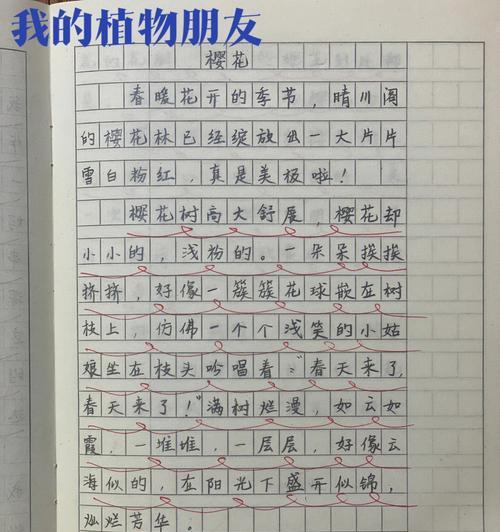 我的植物朋友
樱花
春暖花开的季节，晴川阁
的樱花林已经绽放出一大片片
雪白粉红，真是美极啦！
樱花树高大舒展，樱花却
小小的，浅粉的。一朵朵挨挨
挤挤，好像一簇簇花球嵌在树
枝上，仿佛一个个浅笑的小姑
娘坐在枝头吟唱着：“春天来了，
春天来了！”满树烂漫，如云如
霞，一堆堆，一层层，好像云
海似的，在阳光下盛开似锦，
灿烂芳华。